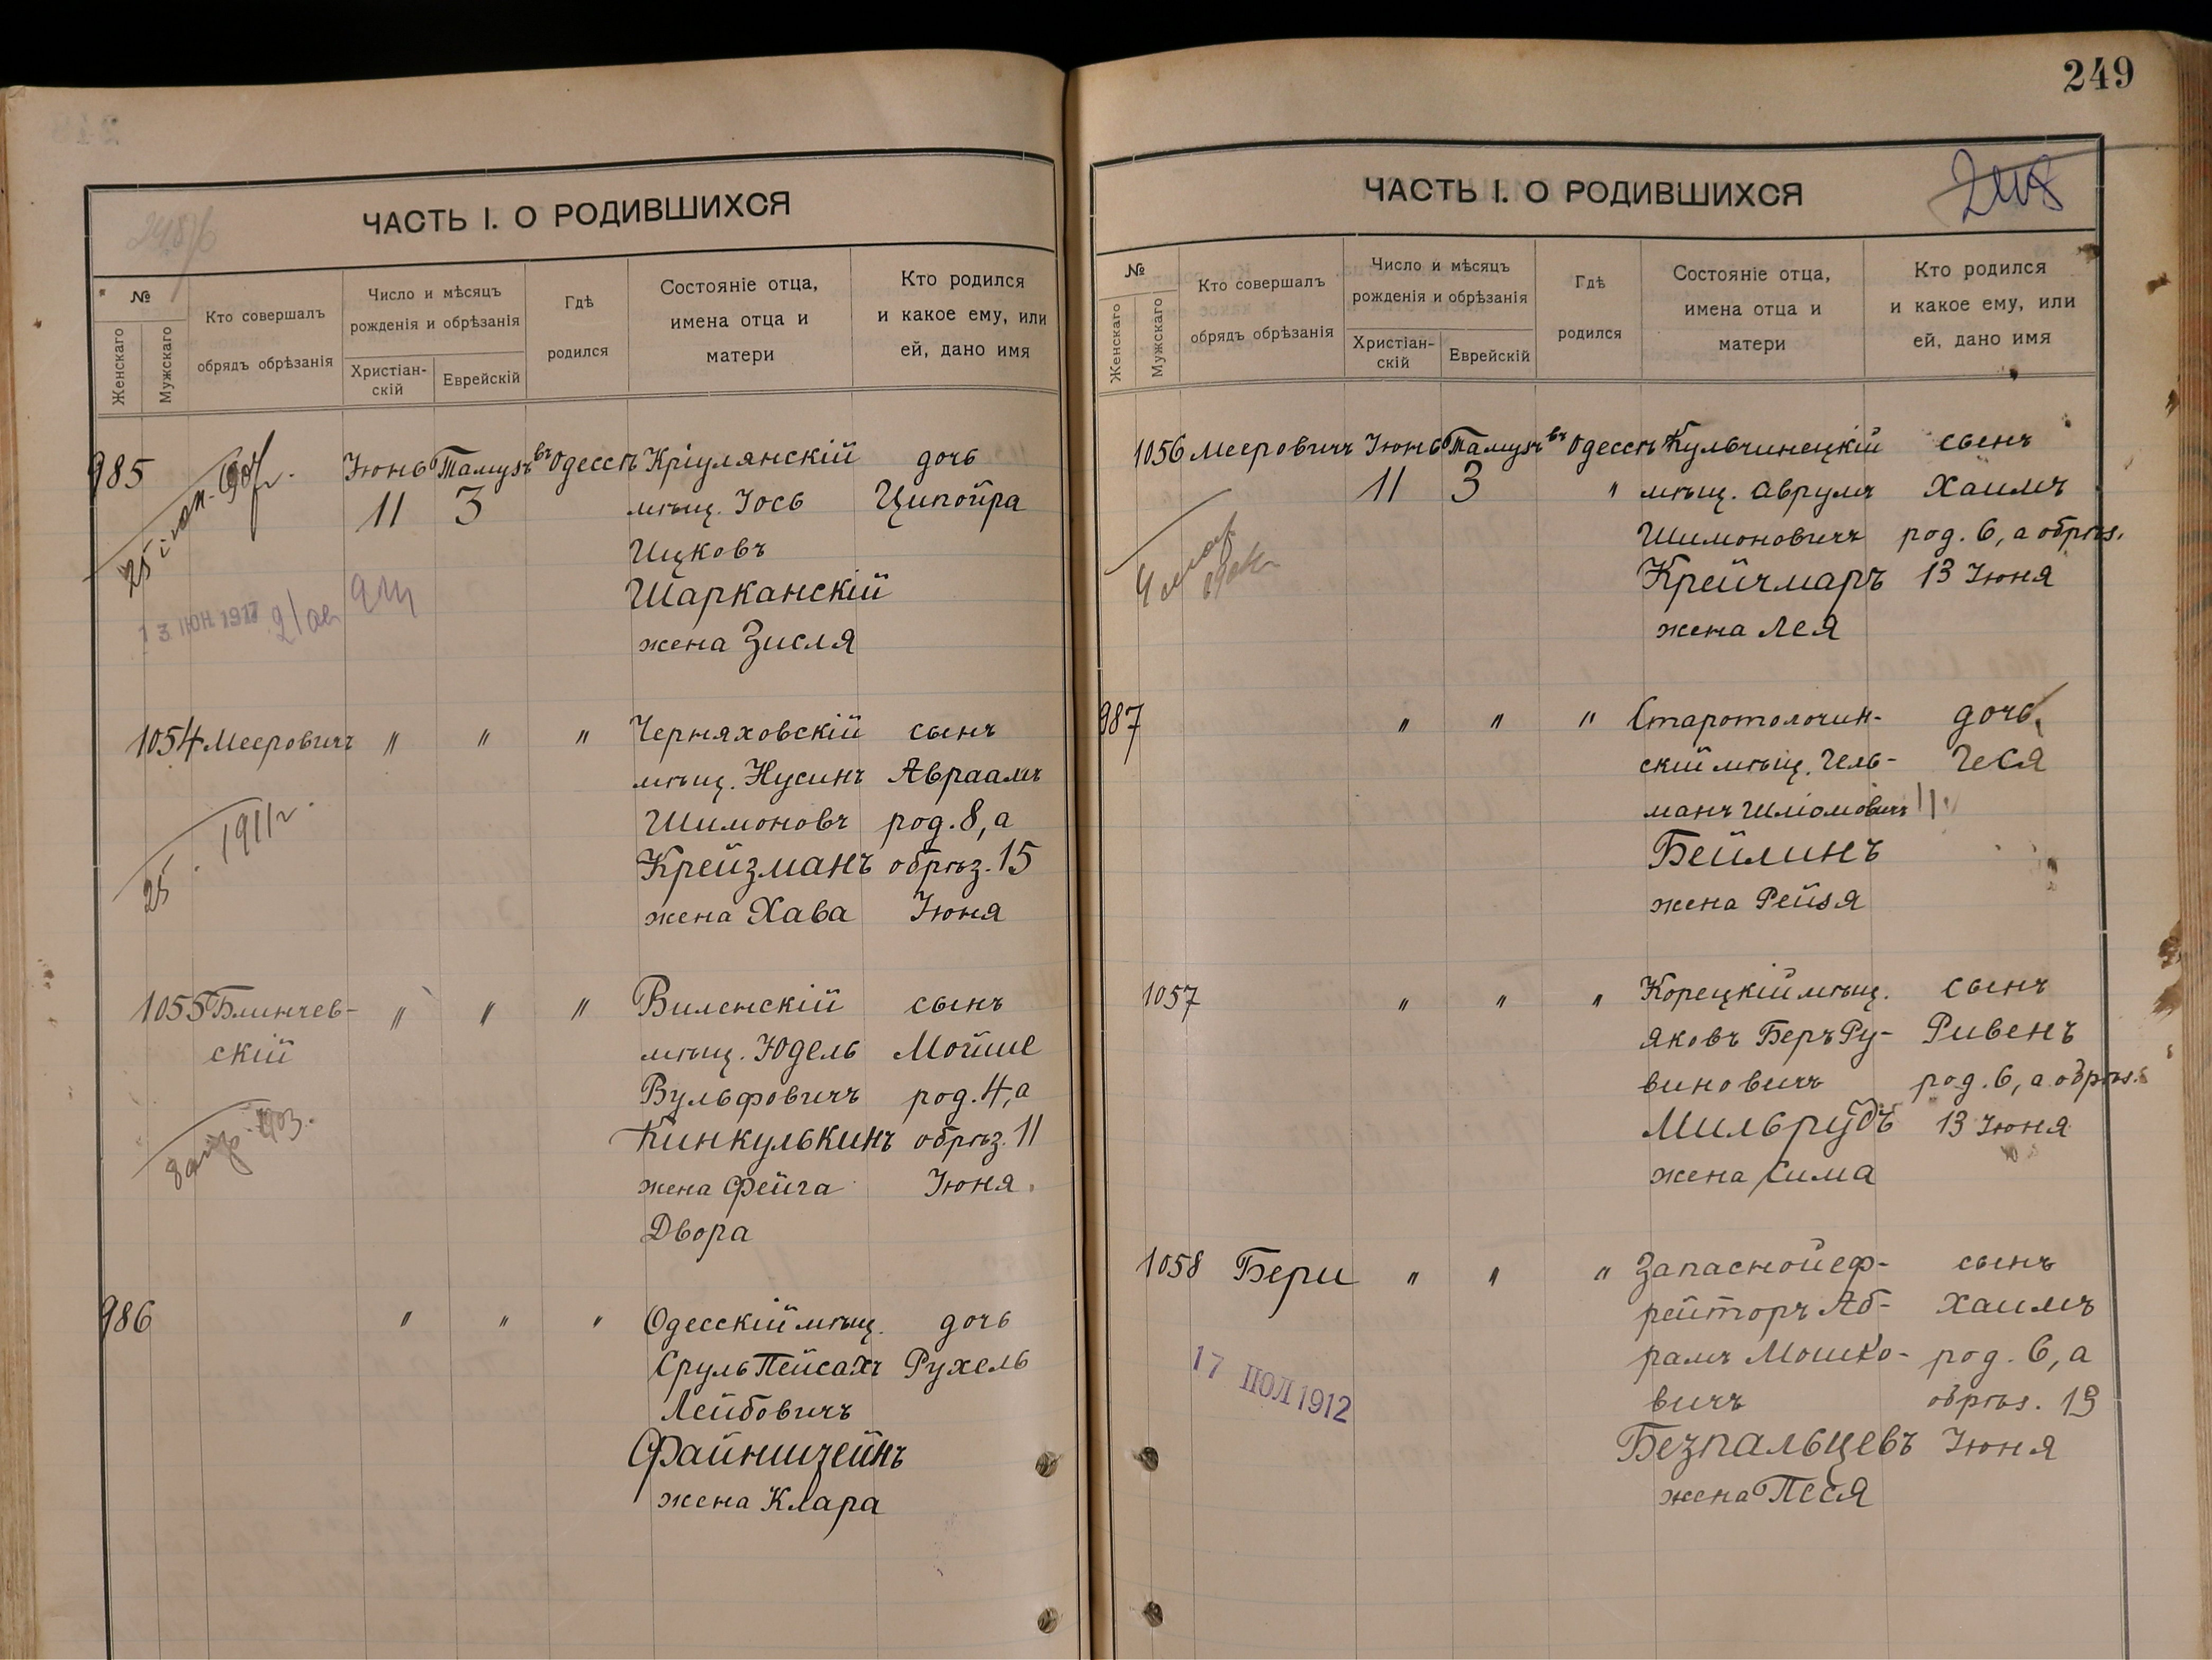 249
ЧАСТЬ I. О РОДИВШИХСЯ
№
Женскаго
Мужскаго
Кто совершалъ
обрядъ обрѣзанія
Число и мѣсяцъ
рожденія и обрѣзанія
Христіан-
скій
Еврейскій
Гдѣ
родился
Состояніе отца,
имена отца и
матери
Кто родился
и какое ему, или
ей, дано имя
985 Іюнь Тамузъ въ Одессѣ Кріулянскій дочь
11 3 мѣщ. Іось Ципойра
Ицковъ
Шарканскій
жена Зисля
13 ІЮН 1917
1054 Мееровичъ " " " Черняховскій сынъ
мѣщ. Нусинъ Авраамъ
Шимоновъ род. 8, а
Крейзманъ обрѣз. 15
жена Хава Іюня
25 1911 г.
1055 Блинчев- " " " Виленскій сынъ
скій мѣщ. Юдель Мойше
Вульфовичъ род. 4, а
Кинкулькинъ обрѣз. 11
жена Фейга Іюня
Двора
986 " " " Одесскій мѣщ. дочь
Сруль Пейсахъ Рухель
Лейбовичъ
Файнштейнъ
жена Клара
ЧАСТЬ I. О РОДИВШИХСЯ
№
Женскаго
Мужскаго
Кто совершалъ
обрядъ обрѣзанія
Число и мѣсяцъ
рожденія и обрѣзанія
Христіан-
скій
Еврейскій
Гдѣ
родился
Состояніе отца,
имена отца и
матери
Кто родился
и какое ему, или
ей, дано имя
1056 Мееровичъ Іюнь Тамузъ въ Одессѣ Кульчинецкій сынъ
11 3 " мѣщ. Аврумъ Хаимъ
Шимоновичъ род. 6, а обрѣз.
Крейчмаръ 13 Іюня
жена Лея
987 " " " Старотолочин- дочь
скій мѣщ. Гель- Геся
манъ Шліомовичъ
Бейлинъ
жена Рейзя
1057 " " " Корецкій мѣщ. сынъ
Яковъ Беръ Ру- Ривенъ
виновичъ род. 6, а обрѣз.
Мильрудъ 13 Іюня
жена Сима
1058 Бери " " " Запасной еф- сынъ
рейторъ Аб- Хаимъ
рамъ Мошко- род. 6, а
вичъ обрѣз. 13
Безпальцевъ Іюня
жена Песя
17 ІЮЛ 1912